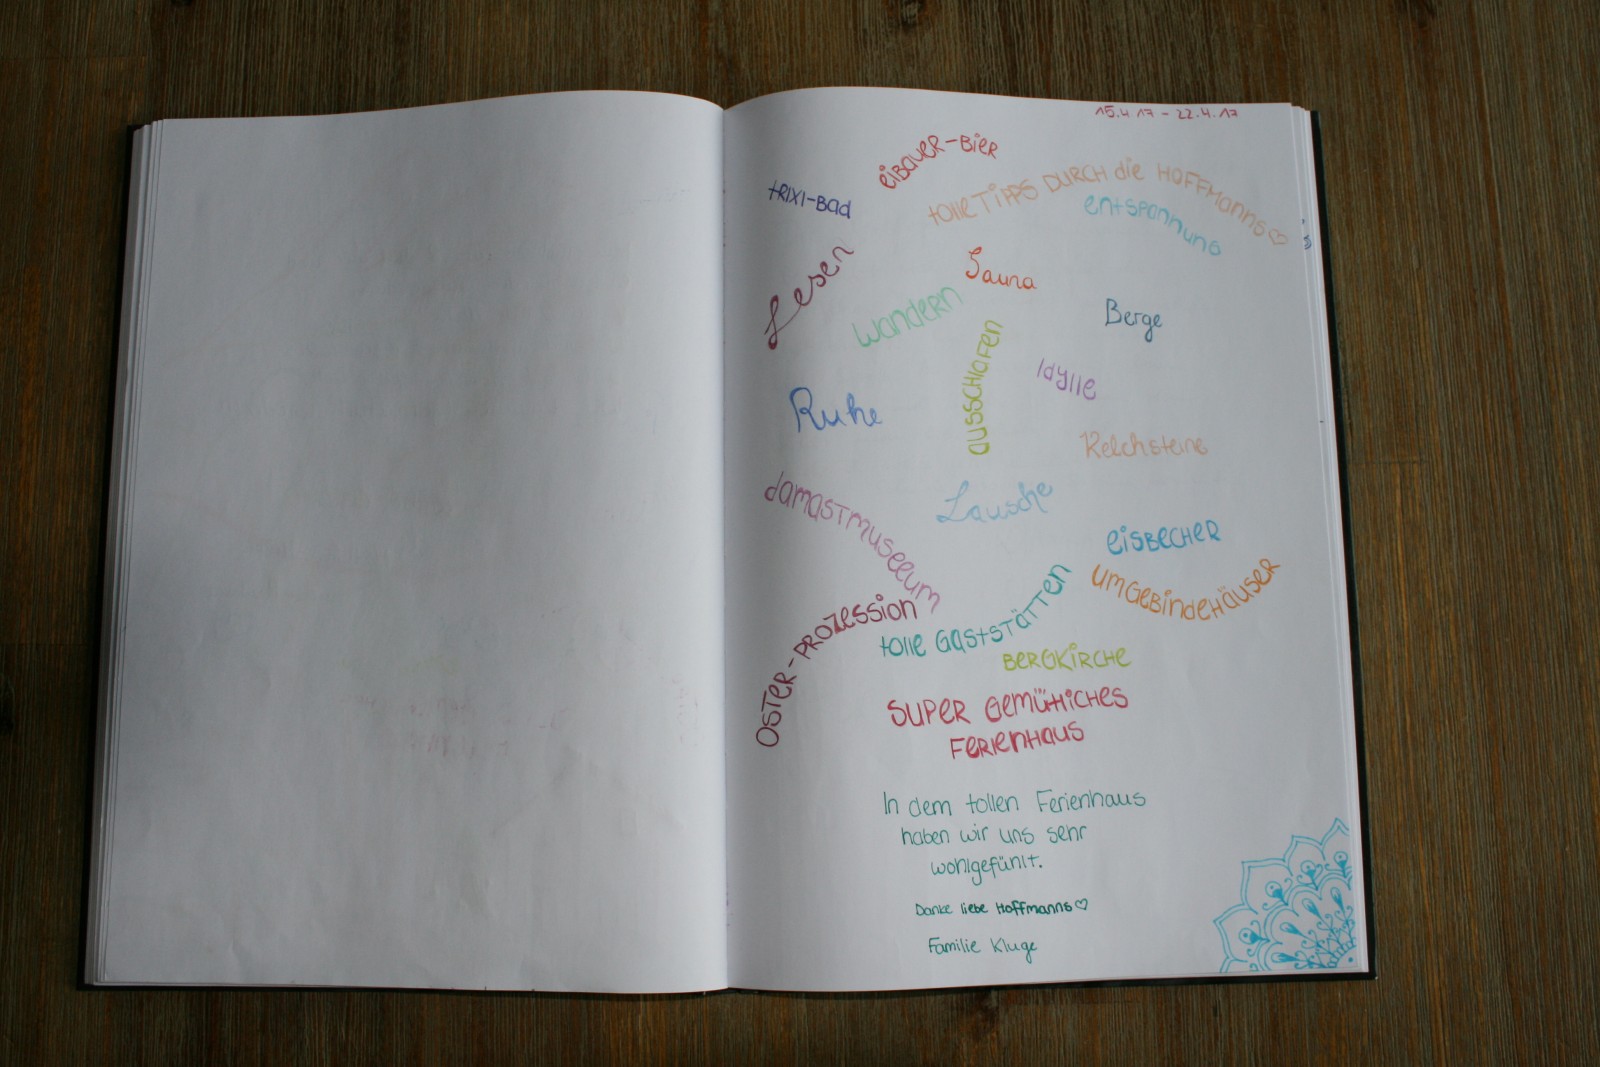 15.4.17 - 22.4.17
eibauer-Bier
trixi-Bad
tolle Tipps durch die Hoffmanns♡
entspannung
Lesen
Sauna
wandern
Berge
ausschlafen
Idylle
Ruhe
Kelchsteine
damastmuseeum
Lausche
eisbecher
umgebindehäuser
Oster-Prozession
tolle Gaststätten
Bergkirche
Super gemütliches
Ferienhaus
In dem tollen Ferienhaus
haben wir uns sehr
wohlgefühlt.
Danke liebe Hoffmanns♡
Familie Kluge